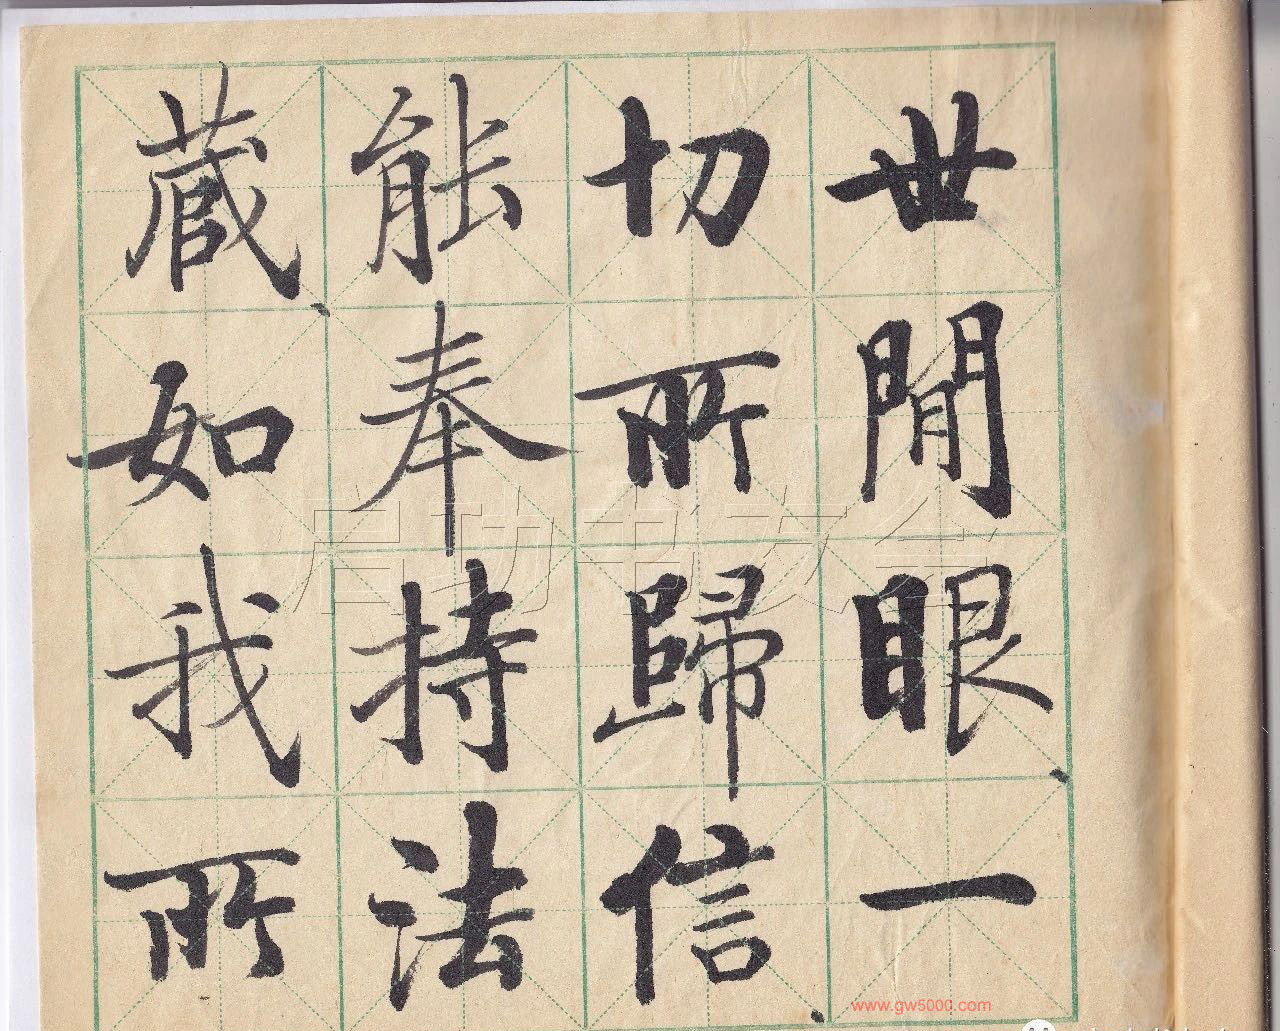 世間眼一
切所歸信
能奉持法
藏如我所
启功书友会
www.gw5000.com